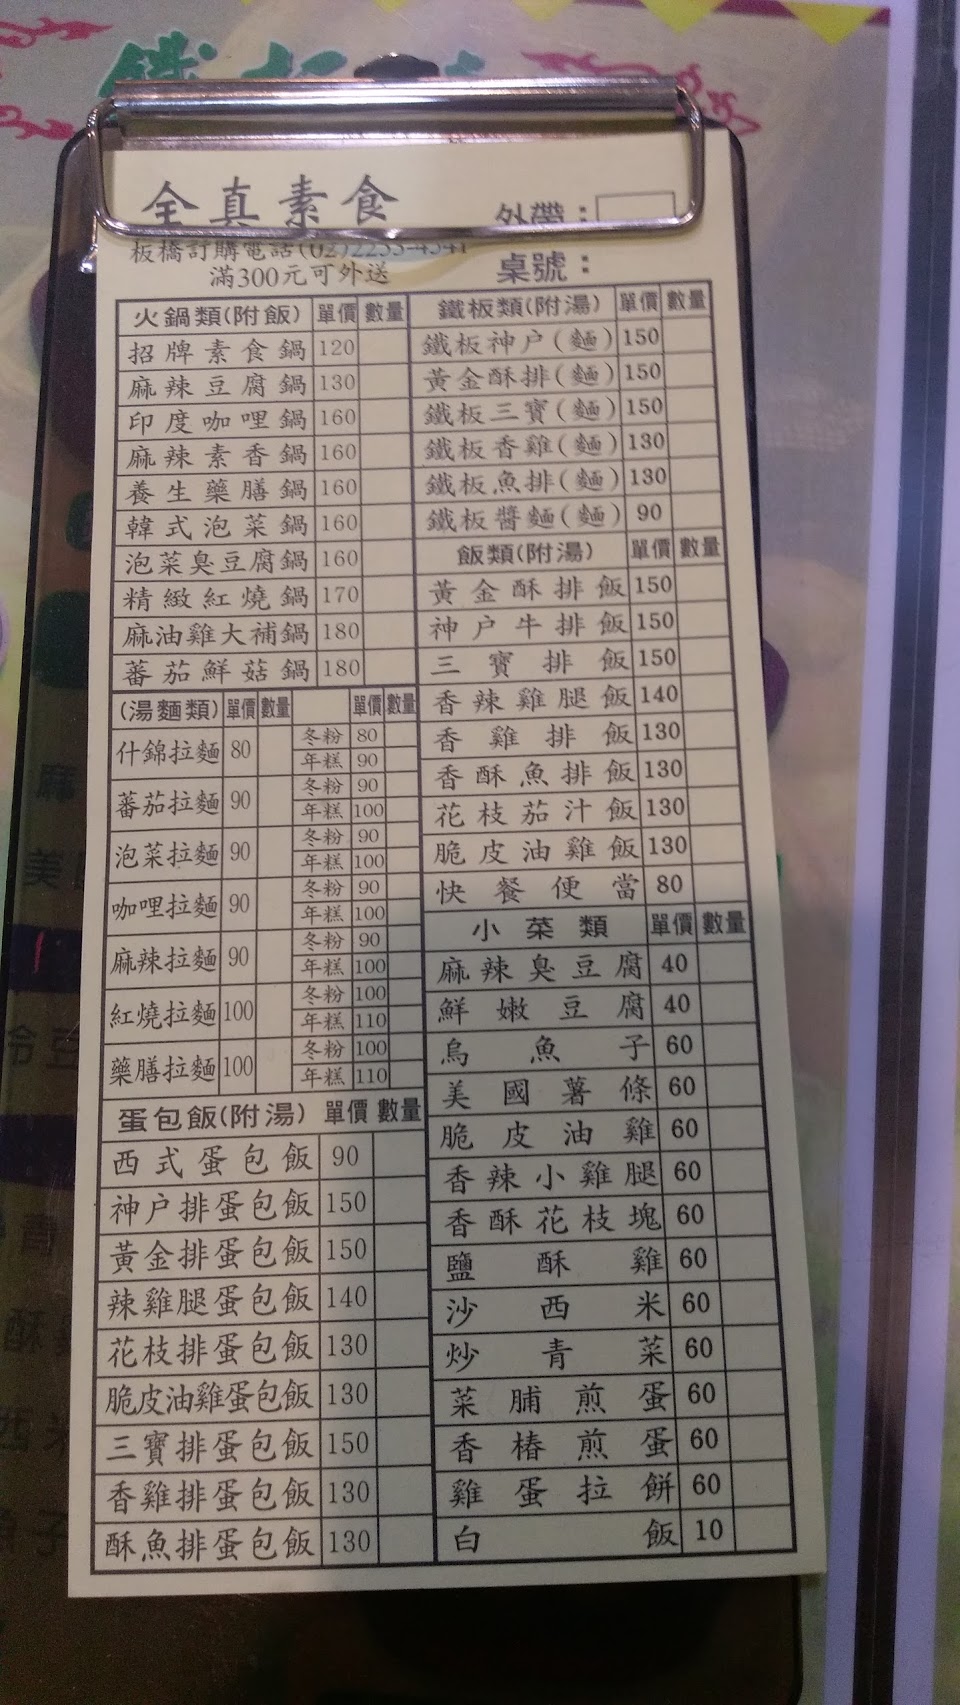 全真素食
外帶：
板橋訂購電話(02)2253-4541
滿300元可外送
桌號：
火鍋類(附飯) 單價 數量
招牌素食鍋 120
麻辣豆腐鍋 130
印度咖哩鍋 160
麻辣素香鍋 160
養生藥膳鍋 160
韓式泡菜鍋 160
泡菜臭豆腐鍋 160
精緻紅燒鍋 170
麻油雞大補鍋 180
蕃茄鮮菇鍋 180
(湯麵類) 單價 數量 單價 數量
什錦拉麵 80 冬粉 80
年糕 90
蕃茄拉麵 90 冬粉 90
年糕 100
泡菜拉麵 90 冬粉 90
年糕 100
咖哩拉麵 90 冬粉 90
年糕 100
麻辣拉麵 90 冬粉 90
年糕 100
紅燒拉麵 100 冬粉 100
年糕 110
藥膳拉麵 100 冬粉 100
年糕 110
蛋包飯(附湯) 單價 數量
西式蛋包飯 90
神戶排蛋包飯 150
黃金排蛋包飯 150
辣雞腿蛋包飯 140
花枝排蛋包飯 130
脆皮油雞蛋包飯 130
三寶排蛋包飯 150
香雞排蛋包飯 130
酥魚排蛋包飯 130
鐵板類(附湯) 單價 數量
鐵板神戶(麵) 150
黃金酥排(麵) 150
鐵板三寶(麵) 150
鐵板香雞(麵) 130
鐵板魚排(麵) 130
鐵板醬麵(麵) 90
飯類(附湯) 單價 數量
黃金酥排飯 150
神戶牛排飯 150
三寶排飯 150
香辣雞腿飯 140
香雞排飯 130
香酥魚排飯 130
花枝茄汁飯 130
脆皮油雞飯 130
快餐便當 80
小菜類 單價 數量
麻辣臭豆腐 40
鮮嫩豆腐 40
烏魚子 60
美國薯條 60
脆皮油雞 60
香辣小雞腿 60
香酥花枝塊 60
鹽酥雞 60
沙西米 60
炒青菜 60
菜脯煎蛋 60
香椿煎蛋 60
雞蛋拉餅 60
白飯 10